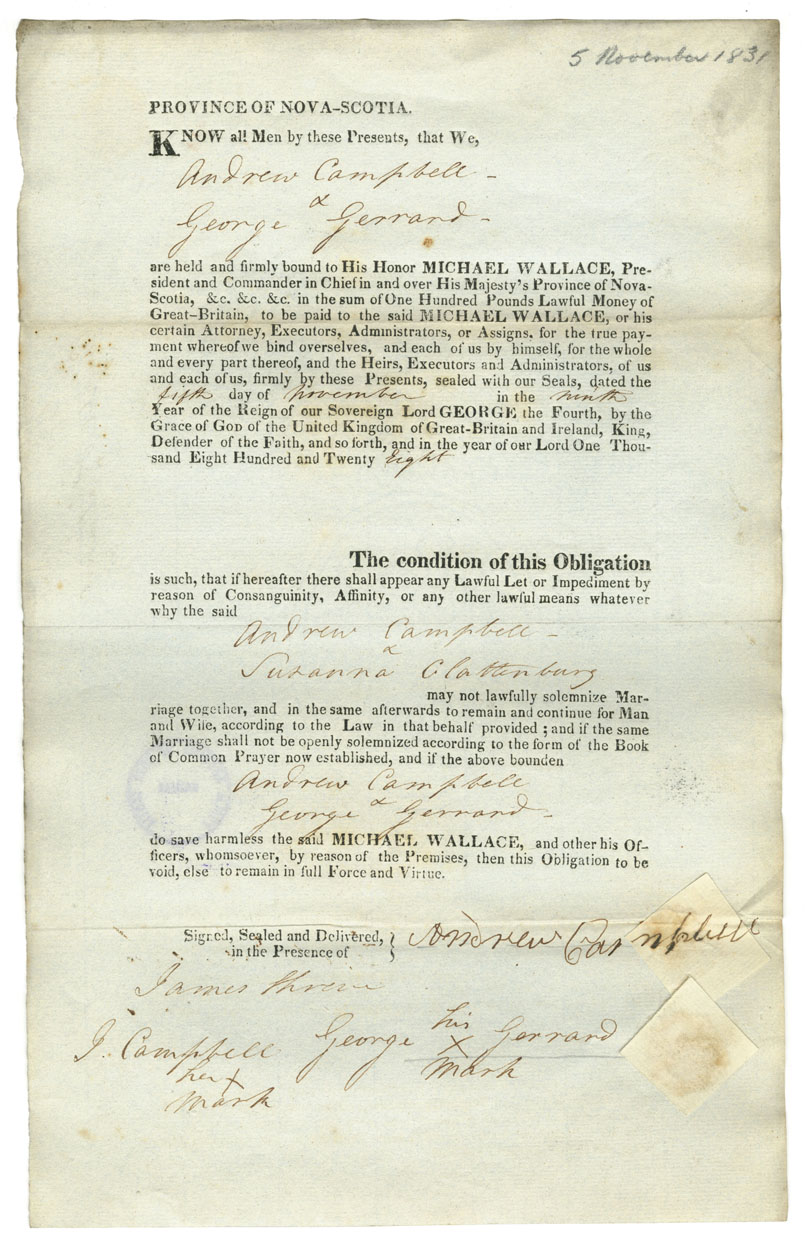 5 November 1831
PROVINCE OF NOVA-SCOTIA.
KNOW all Men by these Presents, that We,
Andrew Campbell -
&
George Gerrard -
are held and firmly bound to His Honor MICHAEL WALLACE, Pre-
sident and Commander in Chief in and over His Majesty's Province of Nova-
Scotia, &c. &c. &c. in the sum of One Hundred Pounds Lawful Money of
Great-Britain, to be paid to the said MICHAEL WALLACE, or his
certain Attorney, Executors, Administrators, or Assigns. for the true pay-
ment whereof we bind overselves, and each of us by himself, for the whole
and every part thereof, and the Heirs, Executors and Administrators, of us
and each of us, firmly by these Presents, sealed with our Seals, dated the
fifth day of November in the ninth
Year of the Reign of our Sovereign Lord GEORGE the Fourth, by the
Grace of GOD of the United Kingdom of Great-Britain and Ireland, King,
Defender of the Faith, and so forth, and in the year of our Lord One Thou-
sand Eight Hundred and Twenty Eight
The condition of this Obligation
is such, that if hereafter there shall appear any Lawful Let or Impediment by
reason of Consanguinity, Affinity, or any other lawful means whatever
why the said
Andrew Campbell -
&
Susanna Clattenburg
may not lawfully solemnize Mar-
riage together, and in the same afterwards to remain and continue for Man
and Wife, according to the Law in that behalf provided ; and if the same
Marriage shall not be openly solemnized according to the form of the Book
of Common Prayer now established, and if the above bounden
Andrew Campbell
&
George Gerrard -
do save harmless the said MICHAEL WALLACE, and other his Of-
ficers, whomsoever, by reason of the Premises, then this Obligation to be
void, else to remain in full Force and Virtue.
Signed, Sealed and Delivered, } Andrew Campbell
in the Presence of
James
J. Campbell George his Gerrard
her X X
mark mark